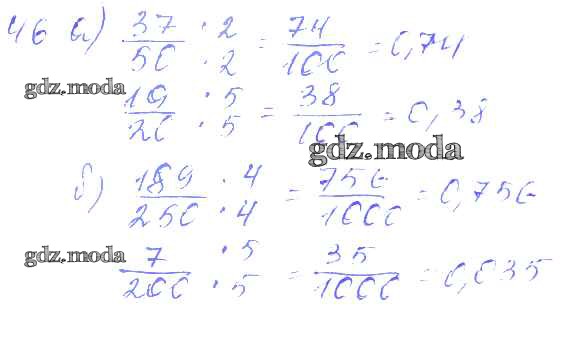 46 а) 37/50 · 2/2 = 74/100 = 0,74
gdz.moda
19/20 · 5/5 = 38/100 = 0,38
gdz.moda
б) 189/250 · 4/4 = 756/1000 = 0,756
gdz.moda
7/200 · 5/5 = 35/1000 = 0,035